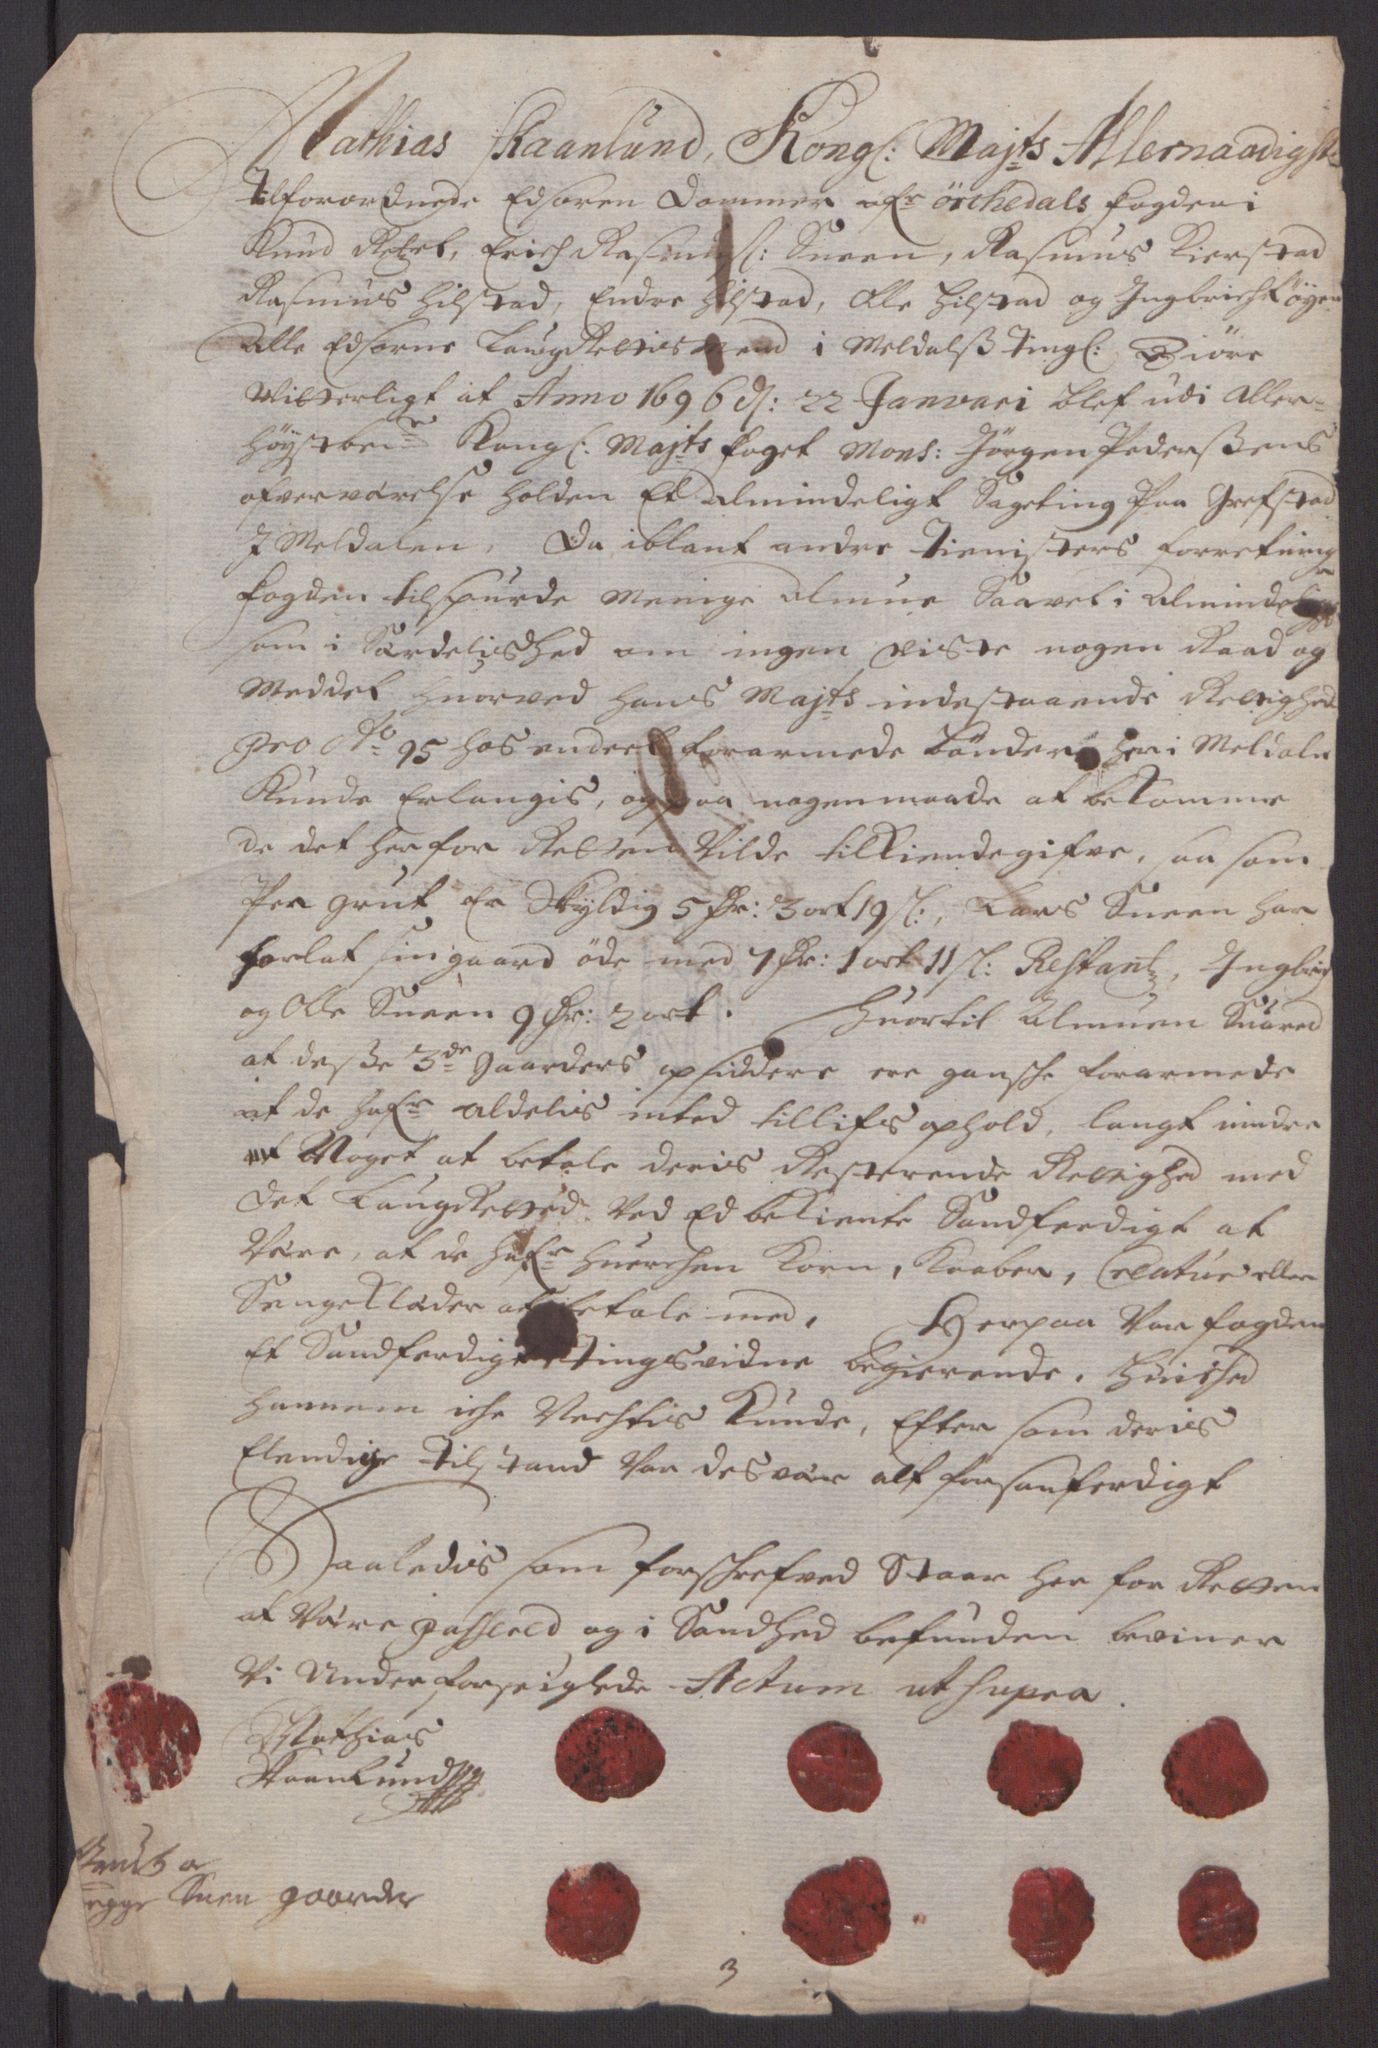 Mathias Skaanlund, Kongl: Majts Allernaadigste
Tilforordnede Edsoren Dommer ofr örchedals fogderi
Knud Erich Rasmusl: Sneen, Rasmus Kierstad
Rasmus Hilstad, Endre Hilstad, Olle Hilstad og Ingbricht öyen
Alle Edsorne LaugRettismend i Meldalß Tingl: Giöre
Witterligt at Anno 1696 d: 22 Januari blef udi aller-
höystbente Kongl: Majts foget Mons: Jörgen Pederßens
ofverværelse holden Et almindeligt Sageting Paa Grefstad
J Meldalen, Da iblant andre Tienisters forretning
fogden tilspurde Menige almue Saavel i almindelighed
som i Særdelished om ingen viste nogen Raad og
Meddel huorved Hans Majts indestaaende Rettighed
pro Ao 95 hos endeel forarmede bönder her i Meldaln
Kunde Erlangis, og paa nogenmaade at bekomme
de det her for Retten Vilde tilkiendegifve, saa som
Per grut Er Skyldig 5 Dr: 3 ort 19 sl:, Lars Sneen har
forlat sin gaard öde med 7 Dr: 1 ort 11 sl: Restantz, Ingbrict
og Olle Sneen 9 Dr: 2 ort. Huortil Almuen Suared
at deße 3de Gaarders opsiddere ere gansche forarmede
at de hafr aldelis inted til lifs ophold, langt mindre
Noget at betale deris Resterende Rettighed med
Det LaugRetted Ved Ed bekiente Sandferdigt at
Være, at de hafr huerchen Korn, Kaaber, Creatur eller
Sengeklæder at betale med, Herpaa Var fogden
Et Sandferdigt Tingsvidne begierende, Huilched
hannem iche Negtis Kunde, Efter som deris
Elendige Tilstand Var desvær alt for sanferdigt
Saaledis som forschrefved Staar her for Retten
at Være passered og i Sandhed befunden beviner
Vi Under forseiglede Actum ut supra.
Mathias
Skaanlund
Grutz og
begge Sneen gaarder
3